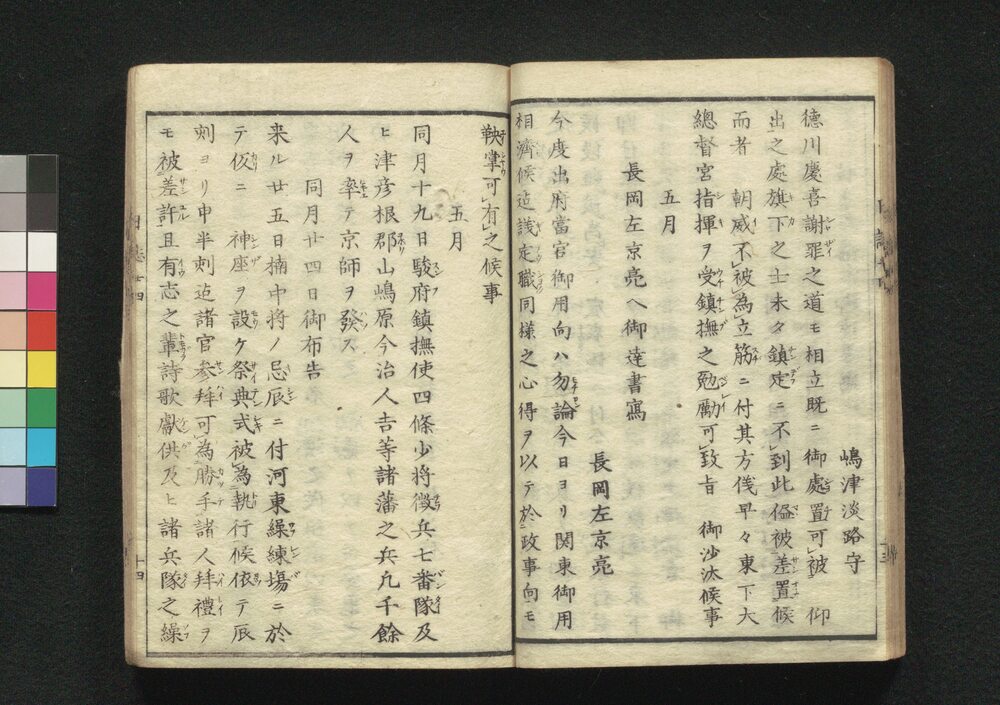 嶋津淡路守
徳川慶喜謝罪之道モ相立既ニ御處置可被 仰
出之處旗下之士未タ鎮定ニ不到此儘被差置候
而者 朝威不被為立筋ニ付其方儀早々東下大
總督宮指揮ヲ受鎮撫之勉勵可致旨 御沙汰候事
五月
長岡左京亮へ御達書寫
長岡左京亮
今度出府當官御用向ハ勿論今日ヨリ関東御用
相濟候迄議定職同様之心得ヲ以テ於政事向モ
鞅掌可有之候事
五月
同月十九日駿府鎮撫使四條少将徴兵七番隊及
ヒ津彦根郡山嶋原今治人吉等諸藩之兵凢千餘
人ヲ率テ京師ヲ發ス
同月廿四日御布告
来ル廿五日楠中将ノ忌辰ニ付河東繰練場ニ於
テ仮ニ 神座ヲ設ケ祭典式被為執行候依テ辰
刻ヨリ申半刻迠諸官参拜可為勝手諸人拜禮ヲ
モ被差許且有志之輩詩歌獻供及ヒ諸兵隊之繰
日誌十四
十四
十三